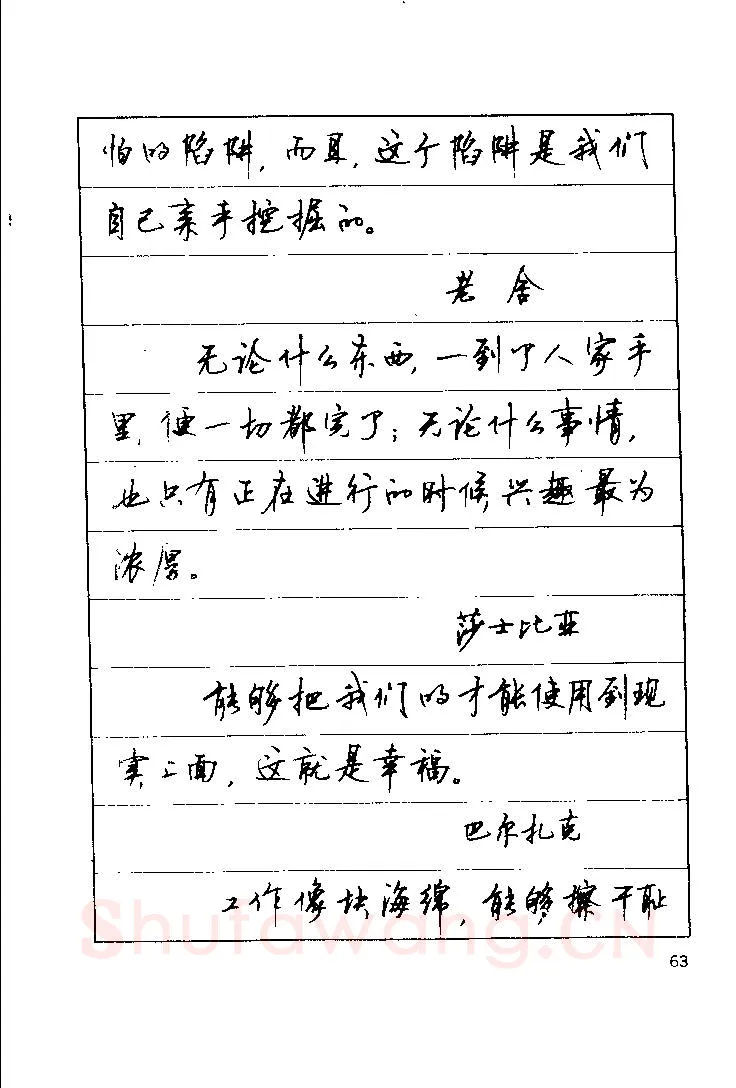 怕的陷阱，而且，这个陷阱是我们
自己亲手挖掘的。
老舍
无论什么东西，一到了人家手
里，便一切都完了；无论什么事情，
也只有正在进行的时候兴趣最为
浓厚。
莎士比亚
能够把我们的才能使用到现
实上面，这就是幸福。
巴尔扎克
工作像块海绵，能够擦干耻
Shufawang.CN
63